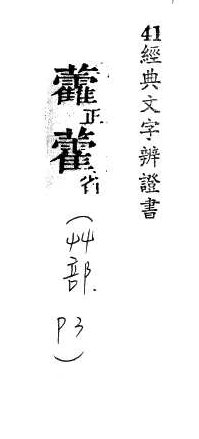 41經典文字辨證書
𧆑正藿省(艸部. P3)